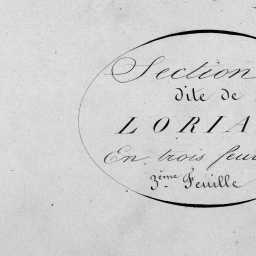 Section
dite de
LORIA
En trois feui
3ème Feuille